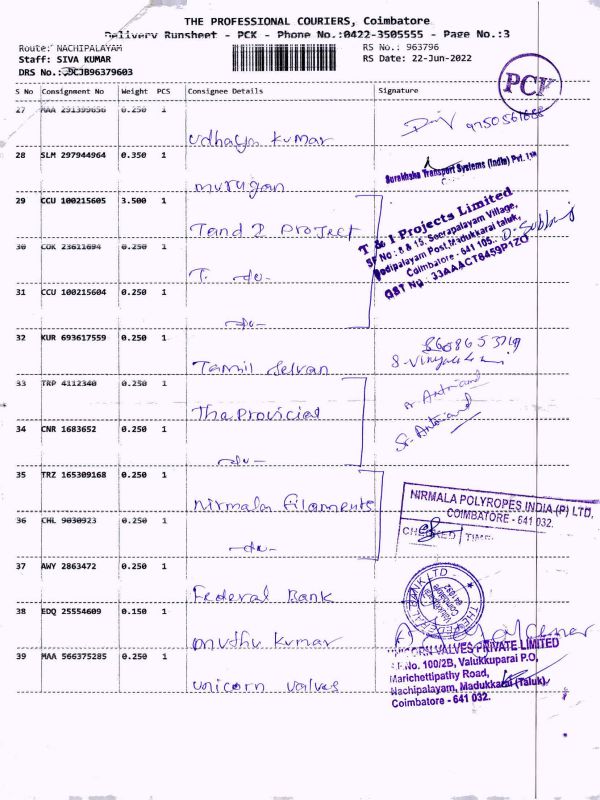 THE PROFESSIONAL COURIERS, Coimbatore
Delivery Runsheet - PCK - Phone No.:0422-3505555 - Page No.:3
Route: NACHIPALAYAM
RS No.: 963796
Staff: SIVA KUMAR
RS Date: 22-Jun-2022
DRS No.: DCJB96379603
PCK
S No Consignment No Weight PCS Consignee Details Signature
27 MAA 291399656 0.250 1
udhaya Kumar
28 SLM 297944964 0.350 1
Surakhsha Transport Systems (India) Pvt. Ltd
murugan
29 CCU 100215605 3.500 1
T and I Project
T & I Projects Limited
SF No : 8 & 15, Seerapalayam Village,
Podipalayam Post, Madukkarai taluk,
Coimbatore - 641 105.
GST No : 33AAACT8459P1ZO
30 COK 23611694 0.250 1
T. -do-
31 CCU 100215604 0.250 1
-do-
32 KUR 693617559 0.250 1
Tamil Selvan
33 TRP 4112340 0.250 1
The Provicial
34 CNR 1683652 0.250 1
-do-
35 TRZ 165309168 0.250 1
Nirmala filaments
NIRMALA POLYROPES INDIA (P) LTD,
COIMBATORE - 641 032.
CHECKED TIME
36 CHL 9030923 0.250 1
-do-
37 AWY 2863472 0.250 1
Federal Bank
THE FEDERAL BANK LTD
38 EDQ 25554609 0.150 1
muthu kumar
39 MAA 566375285 0.250 1
unicorn valves
UNICORN VALVES PRIVATE LIMITED
S.F.No. 100/2B, Valukkuparai P.O,
Marichettipathy Road,
Nachipalayam, Madukkarai (Taluk),
Coimbatore - 641 032.